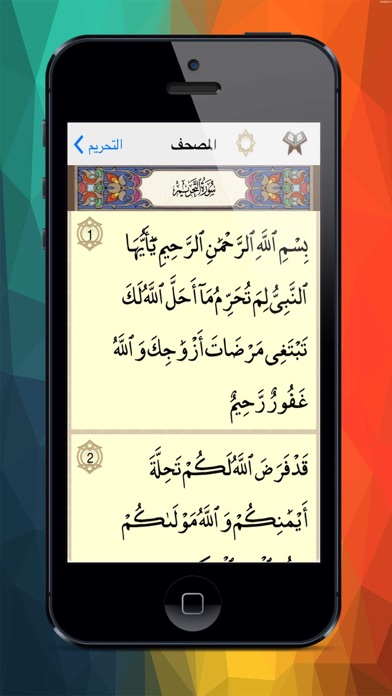 المصحف
التحريم
سورة التحريم
1
بِسْمِ ٱللَّهِ ٱلرَّحْمَٰنِ ٱلرَّحِيمِ يَٰٓأَيُّهَا
ٱلنَّبِىُّ لِمَ تُحَرِّمُ مَآ أَحَلَّ ٱللَّهُ لَكَ
تَبْتَغِى مَرْضَاتَ أَزْوَٰجِكَ وَٱللَّهُ
غَفُورٌ رَّحِيمٌ
2
قَدْ فَرَضَ ٱللَّهُ لَكُمْ تَحِلَّةَ
أَيْمَٰنِكُمْ وَٱللَّهُ مَوْلَىٰكُمْ